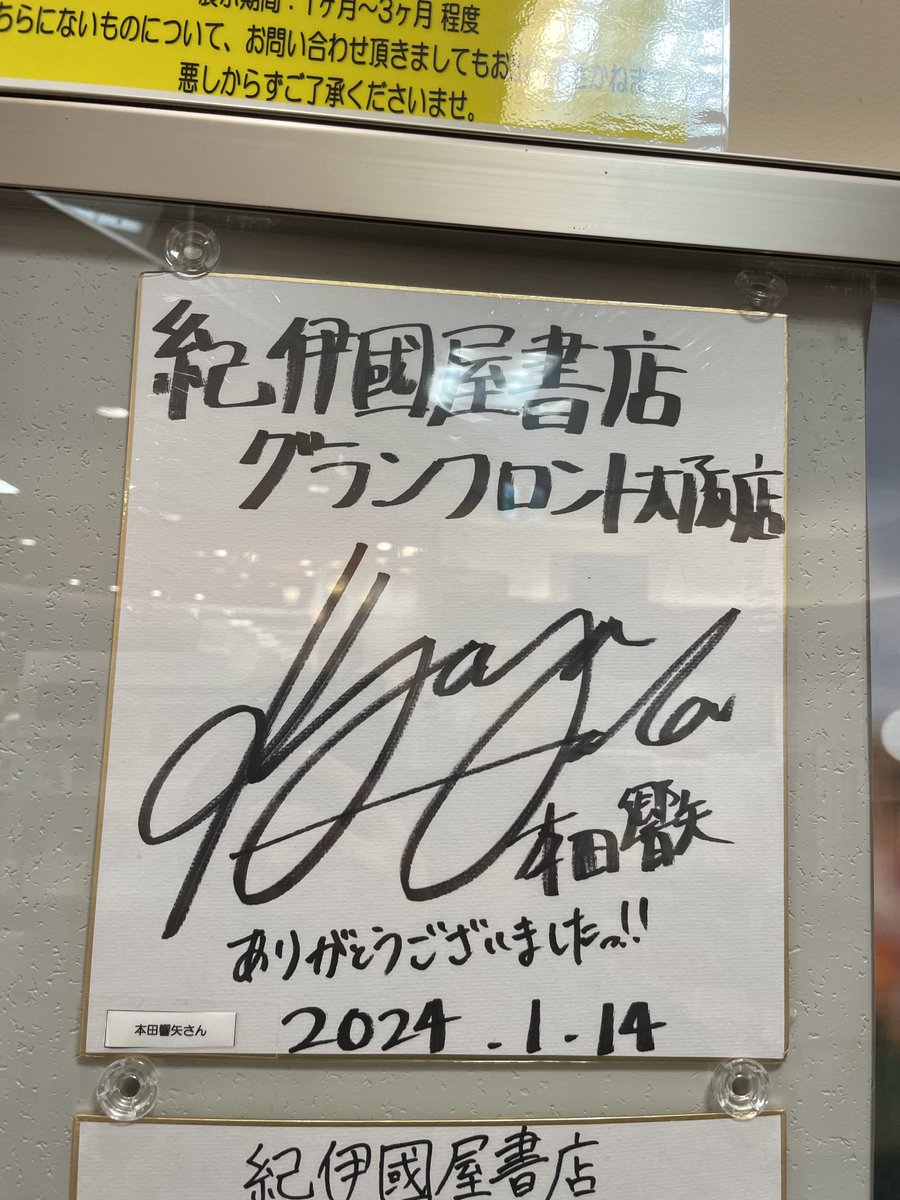 展示期間：1ヶ月～3ヶ月 程度
ちらにないものについて、お問い合わせ頂きましてもお
かねま
悪しからずご了承くださいませ。
紀伊國屋書店
グランフロント大阪店
本田響矢
ありがとうございましたっ!!
2024.1.14
本田響矢さん
紀伊國屋書店